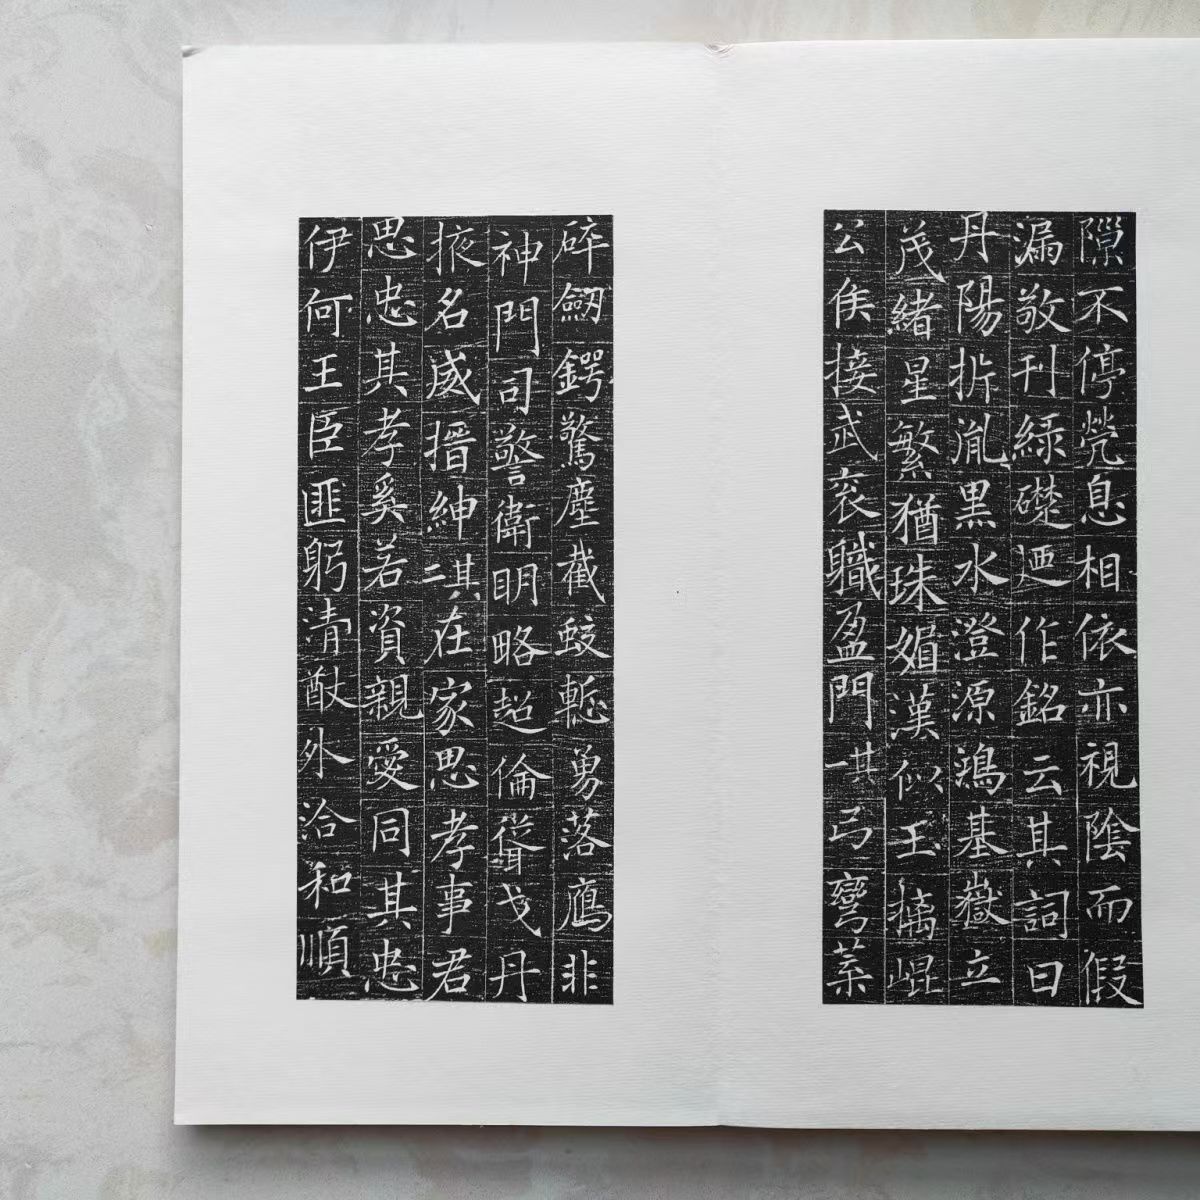 隟不停煢息相依亦視陰而假
漏敬刊緑礎廼作銘云其詞曰
丹陽折胤黒水澄源鴻基嶽立
茂緒星繁猶珠媚漢似玉摛崐
公侯接武衮職盈門其一弓彎
碎劒鍔驚塵截蛟慙勇落鴈非
神門司警衛明略超倫聳戈丹
掖名威搢紳其二在家思孝事君
思忠其孝奚若資親愛同其忠
伊何王臣匪躬清猷外洽和順